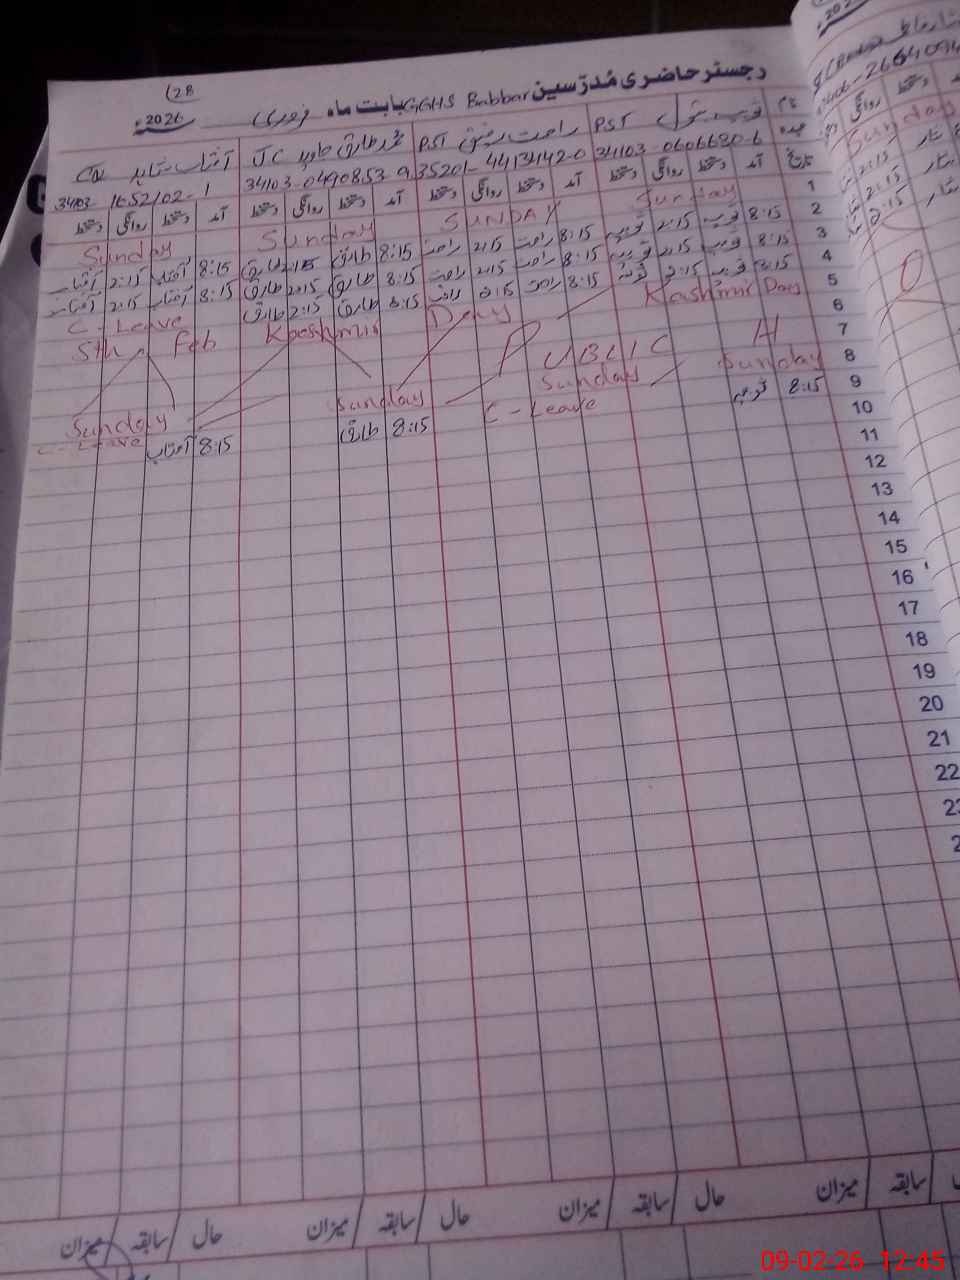 رجسٹر حاضری مُدرّسین GGHS Babbar بابت ماہ فروری 2026ء
(28
نام
عہدہ PST PST JC
34103-0606680-6 35201-4413442-0 34103-0490853-9 34103-1652102-1
تاریخ آمد دستخط روانگی دستخط آمد دستخط روانگی دستخط آمد دستخط روانگی دستخط آمد دستخط روانگی دستخط
1 Sunday SUNDAY Sunday Sunday
2 8:15 2:15 8:15 راحت 2:15 راحت 8:15 طارق 2:15 طارق 8:15 آفتاب 2:15 آفتاب
3 8:15 2:15 8:15 راحت 2:15 راحت 8:15 طارق 2:15 طارق 8:15 آفتاب 2:15 آفتاب
4 8:15 2:15 8:15 راحت 2:15 راحت 8:15 طارق 2:15 طارق C-Leave
5 Kashmir Day Day Kashmir 5th Feb
6
7 H UBLIC P
8 Sunday Sunday Sunday Sunday
9 8:15 C-Leave 8:15 طارق 8:15 آفتاب C-Leave
10
11
12
13
14
15
16
17
18
19
20
21
22
میزان سابقہ حال میزان سابقہ حال میزان سابقہ حال میزان سابقہ حال
Sunday
2:15
2:15
2:15
09-02-26 12:45